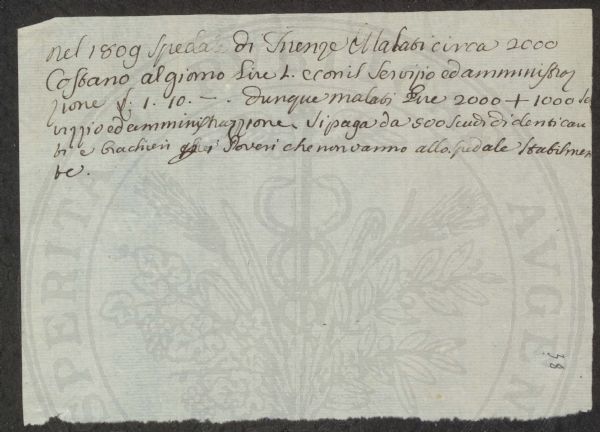 nel 1809 Speda: di Firenze Malati circa 2000
Costano al giorno Lire 1. e con il Servizio ed amministra
zione £. 1. 10. — . dunque malati Lire 2000 + 1000 Se
rvizio ed amministrazzione. si paga da 500 scudi di denti
ti e brachieri i Poveri che non vanno allo spedale stabilmen
te.
38
PROSPERITA
AVGEN